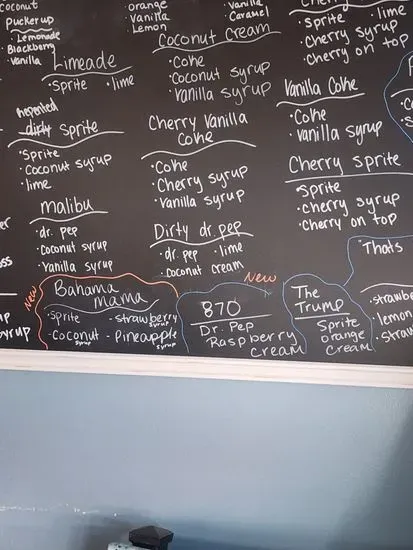 coconut
puckerup
• Lemonade
• Blackberry
• vanilla
orange
• Vanilla
• Lemon
vanilla
• Caramel
Limeade
• Sprite • lime
dirty sprite
• Sprite
• Coconut syrup
• lime
malibu
• dr. pep
• coconut syrup
• vanilla syrup
Coconut Cream
• Coke
• Coconut syrup
• vanilla syrup
Cherry Vanilla
Coke
• Coke
• Cherry syrup
• Vanilla syrup
Dirty dr. pep
• dr. pep • lime
• coconut cream
• Sprite • lime
• Cherry syrup
• Cherry on top
Vanilla Coke
• Coke
• vanilla syrup
Cherry Sprite
• Sprite
• cherry syrup
• Cherry on top
"Thats
• strawbe
• lemon
• straw
New
Bahama
mama
• Sprite - strawberry
syrup
• coconut - Pineapple
syrup syrup
New
870
Dr. Pep
Raspberry
Cream
The
Trump
Sprite
orange
Cream
yrup